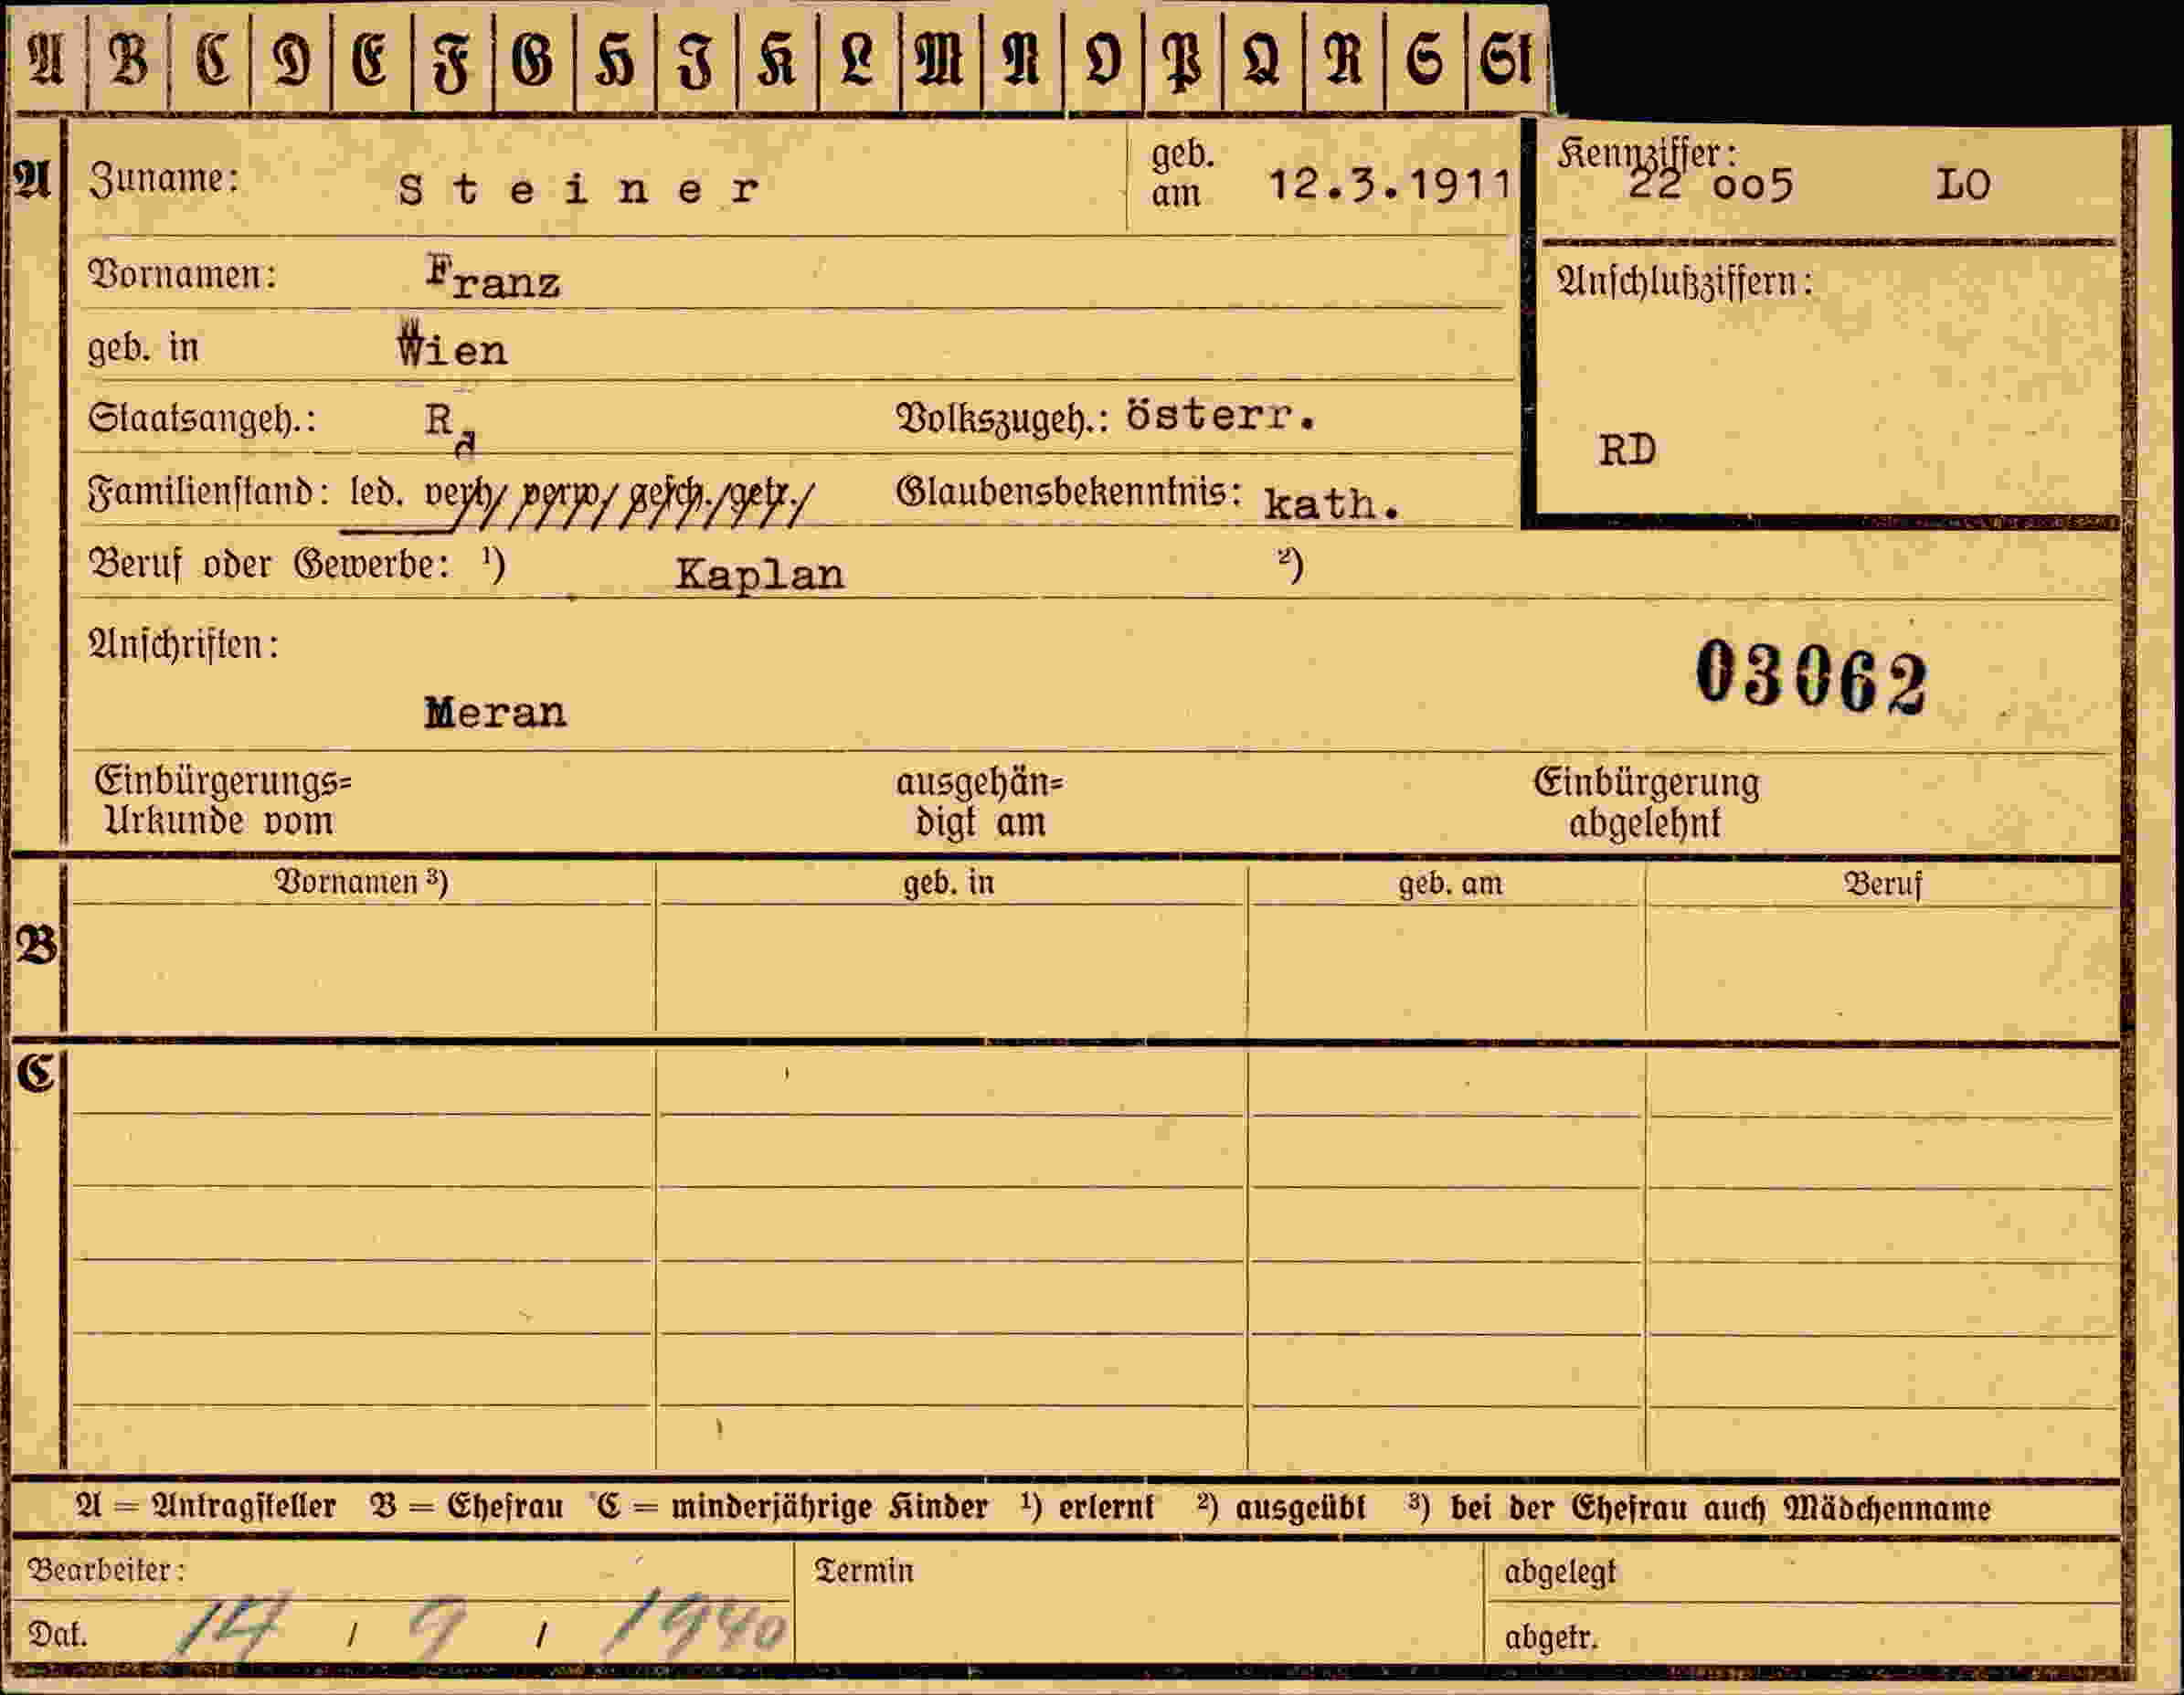 A B C D E F G H I K L M N O P Q R S St
A Zuname: Steiner geb. am 12.3.1911 Kennziffer: 22 oo5 LO
Vornamen: Franz Anschlußziffern:
geb. in Wien
Staatsangeh.: R Volkszugeh.: österr. RD
Familienstand: led. verh. verw. gesch. getr. Glaubensbekenntnis: kath.
Beruf oder Gewerbe: ¹) Kaplan ²)
Anschriften: 03062
Meran
Einbürgerungs= ausgehän= Einbürgerung
Urkunde vom digt am abgelehnt
Vornamen ³) geb. in geb. am Beruf
B
C
A = Antragsteller B = Ehefrau C = minderjährige Kinder ¹) erlernt ²) ausgeübt ³) bei der Ehefrau auch Mädchenname
Bearbeiter: Termin abgelegt
Dat. 14 / 9 / 1940 abgetr.